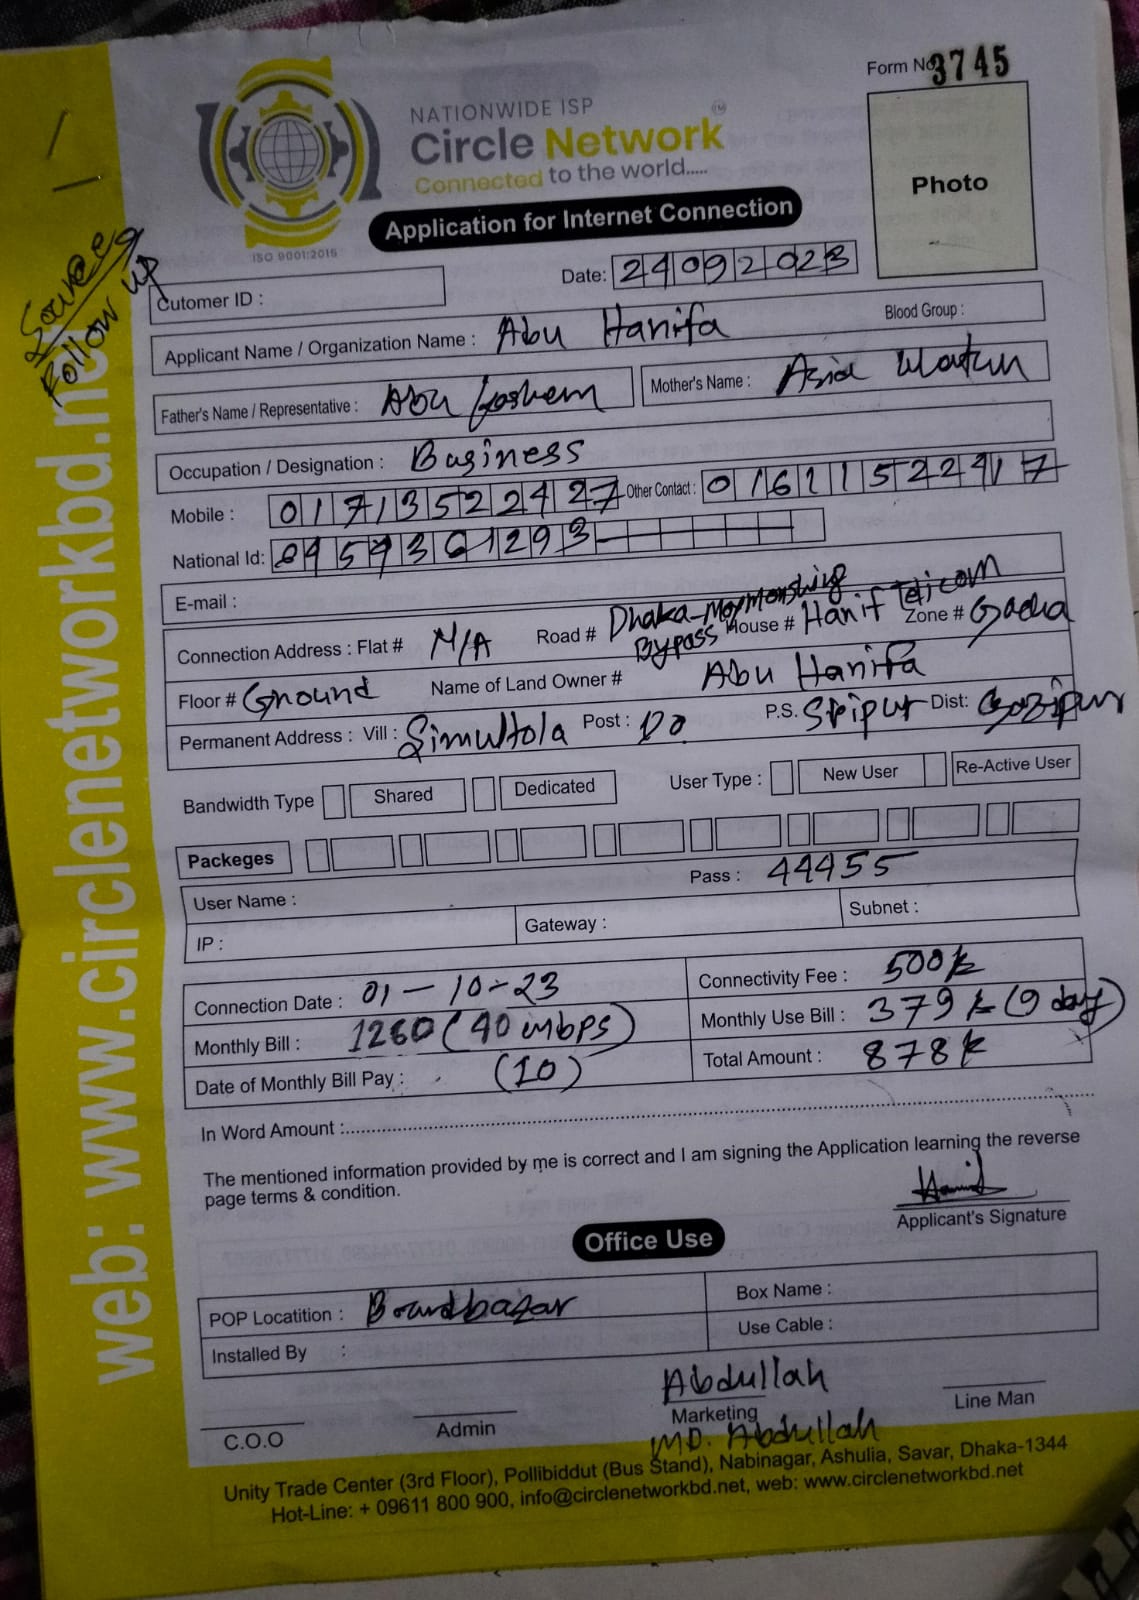 Form No 3745
NATIONWIDE ISP
Circle Network
TM
Connected to the world.....
ISO 9001:2015
Application for Internet Connection
Photo
Source
Follow up
Date: 24092023
Cutomer ID :
Applicant Name / Organization Name : Abu Hanifa
Blood Group :
Father's Name / Representative : Abu
Mother's Name : Asia
Occupation / Designation : Business
Mobile : 01713522427 Other Contact : 01611522917
National Id:
E-mail :
Connection Address : Flat # N/A Road # Dhaka-Moymonshing Bypass House # Hanif Telicom Zone # Gacha
Floor # Ground Name of Land Owner # Abu Hanifa
Permanent Address : Vill : Simultola Post : Do P.S. Sripur Dist: Gazipur
Bandwidth Type Shared Dedicated User Type : New User Re-Active User
Packeges
User Name : Pass : 44455
IP : Gateway : Subnet :
Connection Date : 01-10-23 Connectivity Fee : 500
Monthly Bill : 1260 (40 mbps) Monthly Use Bill : 379 (9 day)
Date of Monthly Bill Pay : (10) Total Amount : 878
In Word Amount :
The mentioned information provided by me is correct and I am signing the Application learning the reverse
page terms & condition.
Applicant's Signature
Office Use
POP Locatition : Boardbazar Box Name :
Installed By : Use Cable :
Abdullah
C.O.O Admin Marketing Line Man
MD. Abdullah
Unity Trade Center (3rd Floor), Pollibiddut (Bus Stand), Nabinagar, Ashulia, Savar, Dhaka-1344
Hot-Line: + 09611 800 900, info@circlenetworkbd.net, web: www.circlenetworkbd.net
web: www.circlenetworkbd.net